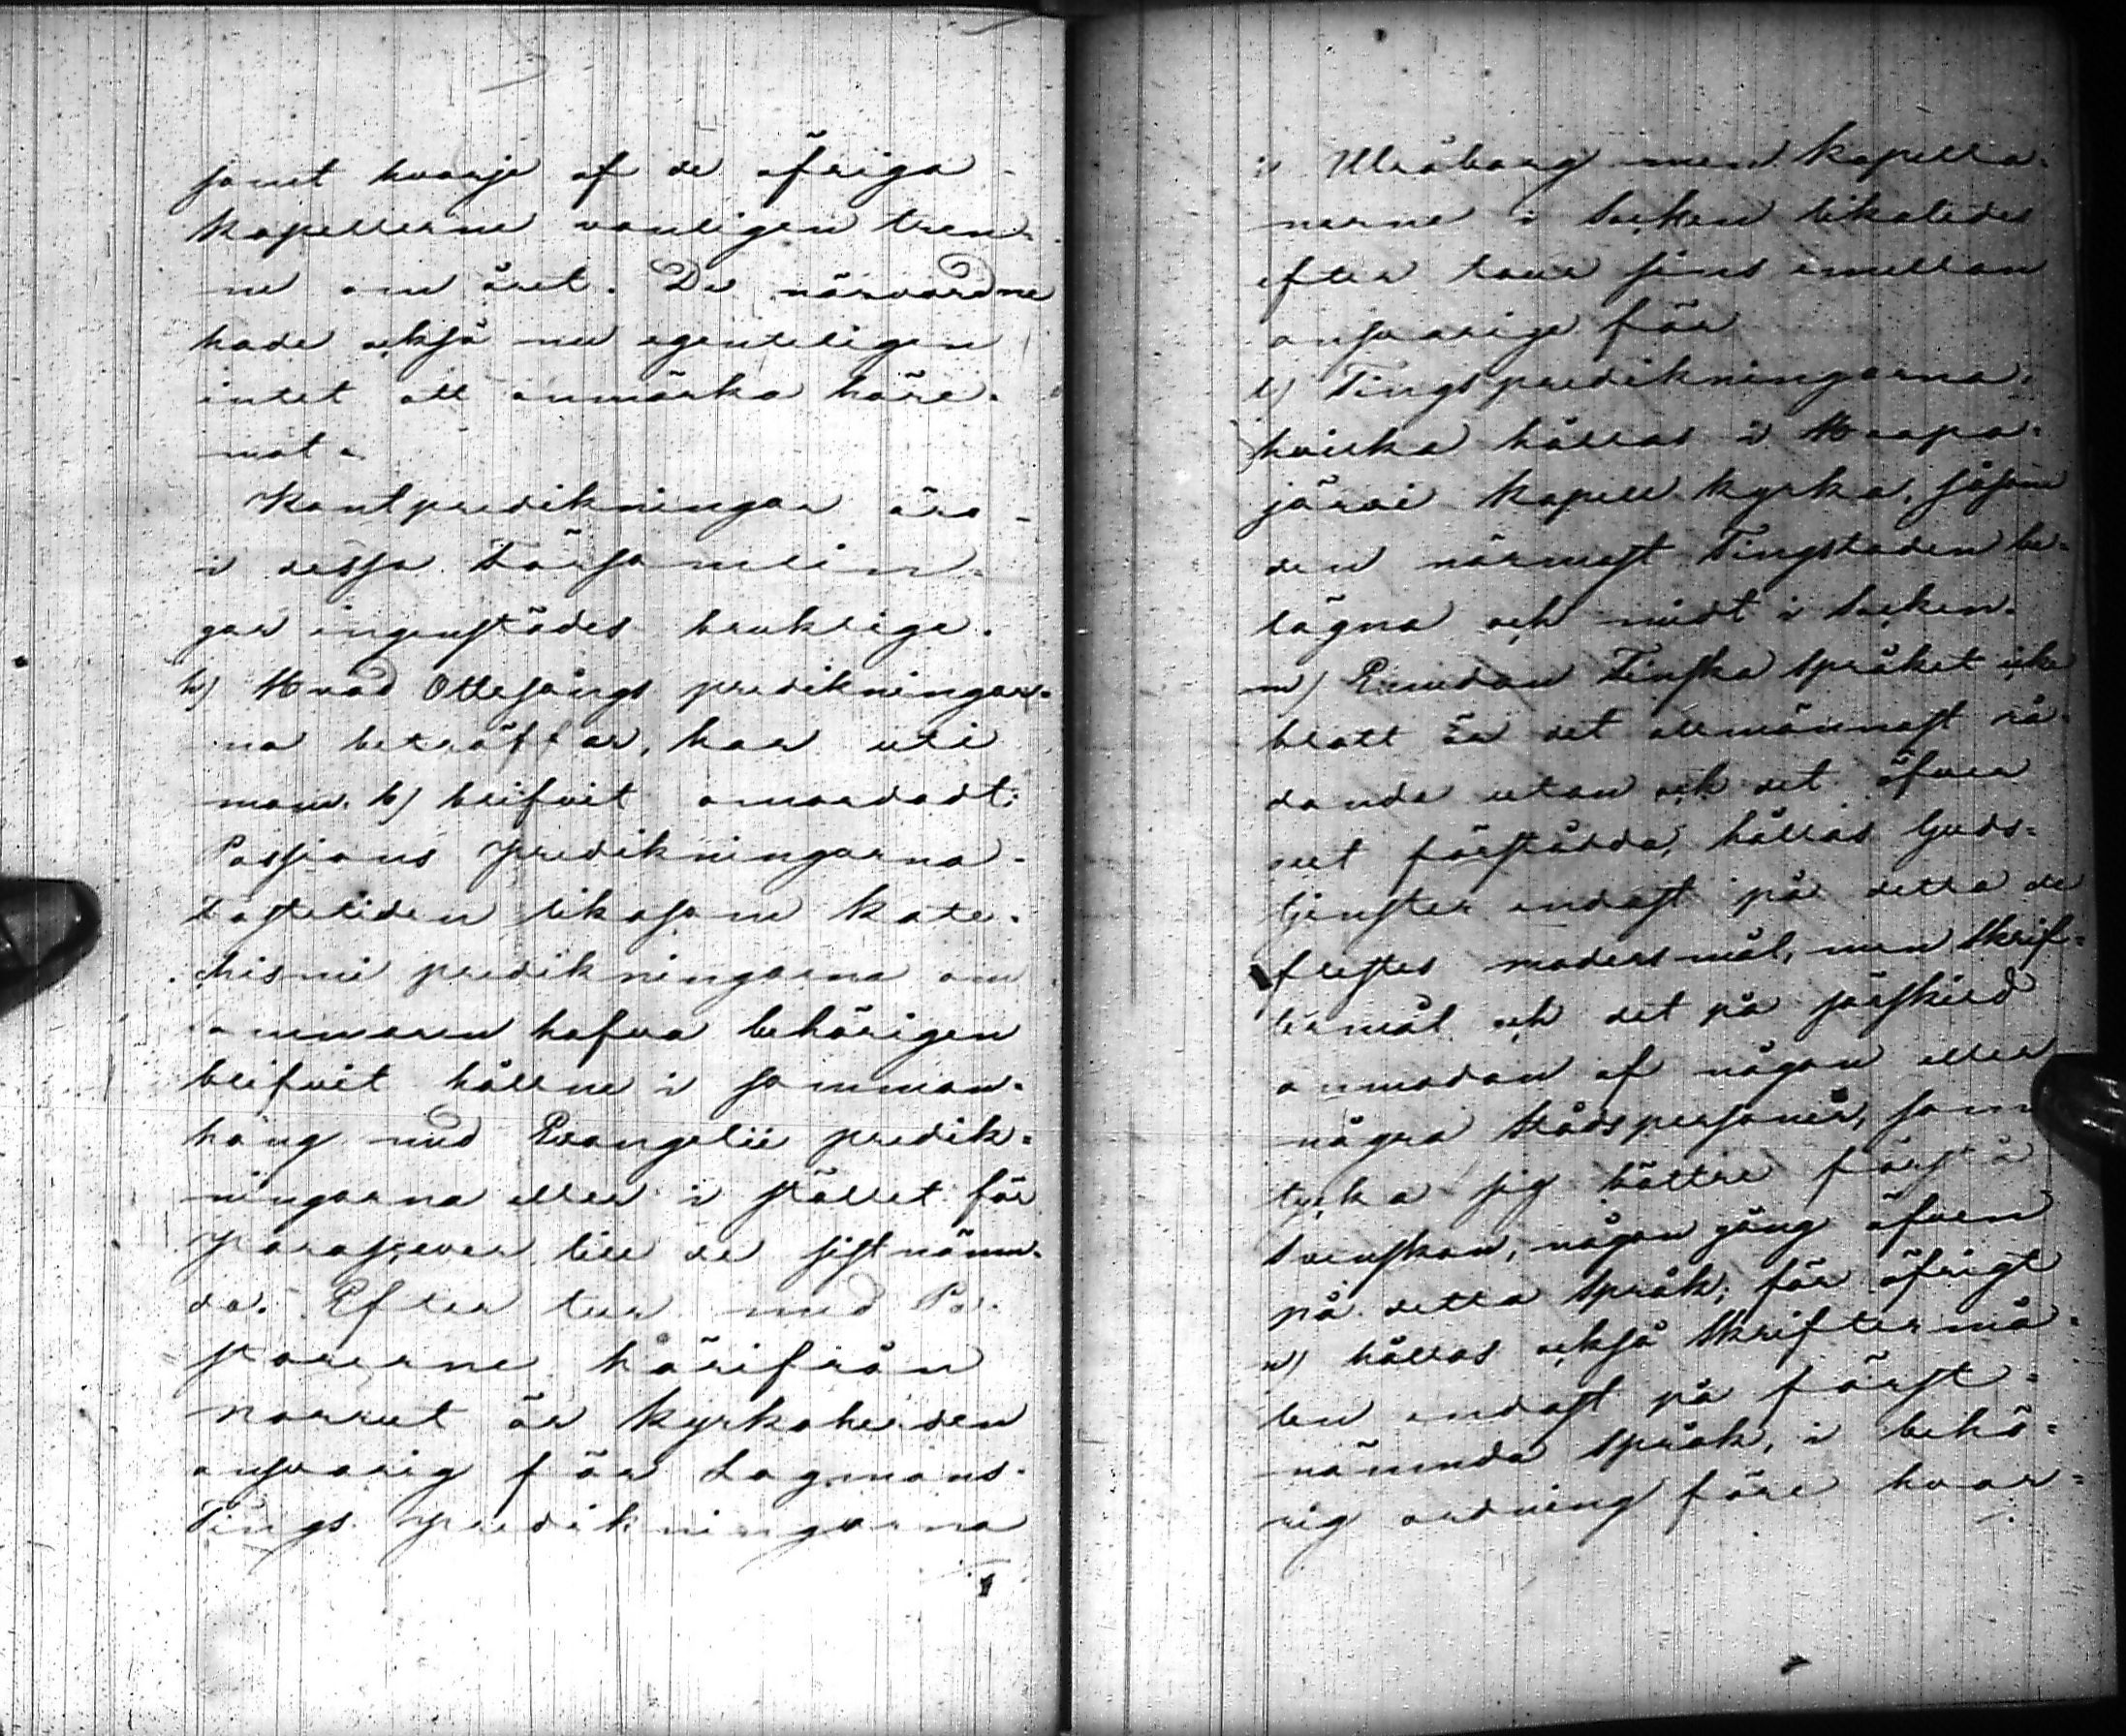 samt hvarje af de öfriga
kapellerne vanligen tren-
ne om året. De närvarande
hade också nu egenteligen
intet att anmärka häre-
mot.
Kantpredikningar äro
i dessa Församlin-
gar ingenstädes brukliga.
k) Hvad Ottesångs predikningar-
na beträffar, har uti
mom. b) blifvit omordadt:
Passions Predikningarna
Fastetiden likasom kate-
chismi predikningarna om
sommaren hafva behörigen
blifvit hållne i samman-
häng med Evangelii predik-
ningarna eller i stället för
Parapraser till de sistnämn-
da. Efter tur med Pa-
storerne härifrån
norrut är Kyrkoherden
ansvarig för Lagmans-
Tings Predikningarna
i Uleåborg men kapella-
nerne i Socken likaledes
efter tour sins emellan
ansvarige för
l) Tingspredikningarna,
hvilka hållas i Haapa-
järvi Kapell kyrka, såsom
den närmast Tingstaden be-
lägna och midt i Socken.
m) Emedan Finska Språket icke
blott är det allmännast rå-
dande utan ock det öfver
alt förstådda, hållas Guds-
tjenster endast på detta de
flestes modersmål, men Skrif-
termål och det på särskild
anmodan af någon eller
några Ståndspersoner, som
tycka sig bättre förstå
Svenskan, någon gång äfven
på detta Språk; för öfrigt
n) hållas också Skriftermå-
len endast på först-
nämnda Språk, i behö-
rig ordning före hvar-